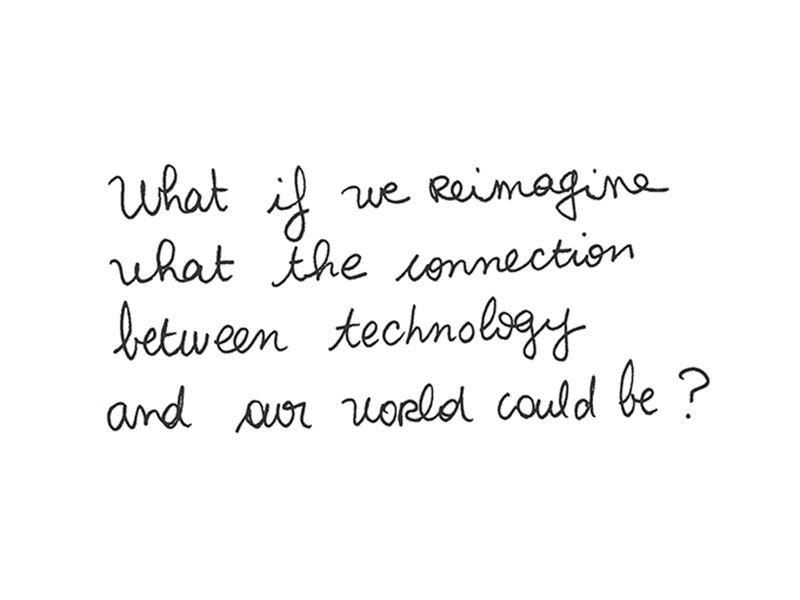 What if we reimagine
what the connection
between technology
and our world could be ?